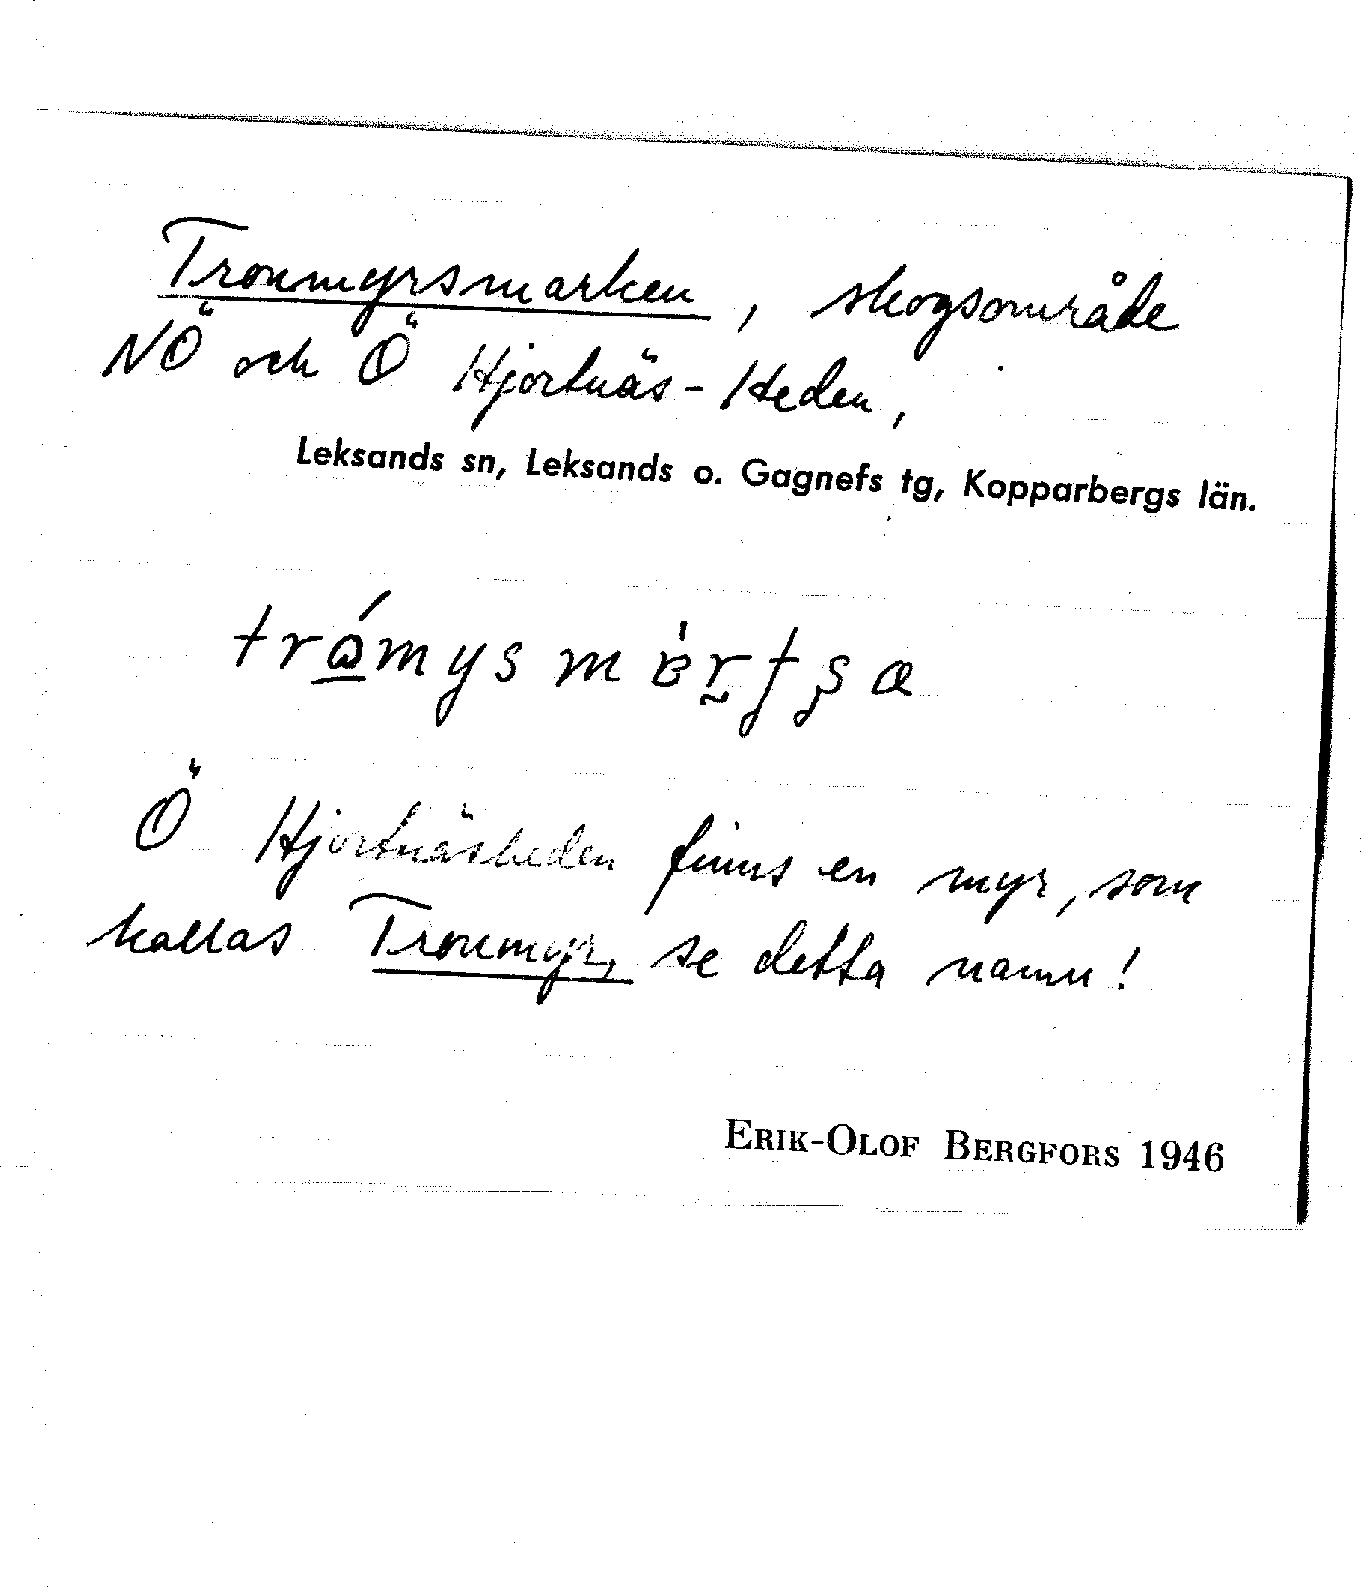 Tronmyrsmarken, skogsområde
NÖ och Ö Hjortnäs-Heden,
Leksands sn, Leksands o. Gagnefs tg, Kopparbergs län.
Ö Hjortnäsheden finns en myr, som
kallas Tronmyr, se detta namn!
ERIK-OLOF BERGFORS 1946